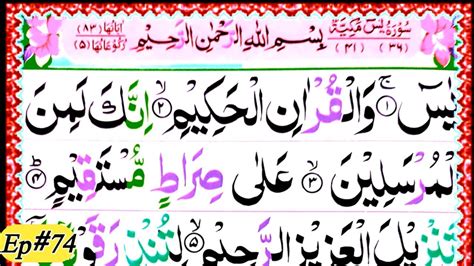 سُوْرَةُ يٰسٓ مَكِّيَّةٌ
(٣٦) (٤١)
بِسْمِ اللّٰهِ الرَّحْمٰنِ الرَّحِيْمِ
اٰيَاتُهَا (٨٣)
رُكُوْعَاتُهَا (٥)
يٰسٓ ۝١ وَالْقُرْاٰنِ الْحَكِيْمِ ۝٢ اِنَّكَ لَمِنَ
الْمُرْسَلِيْنَ ۝٣ عَلٰى صِرَاطٍ مُّسْتَقِيْمٍ ۝٤
تَنْزِيْلَ الْعَزِيْزِ الرَّحِيْمِ ۝٥ لِتُنْذِرَ قَوْمًا
Ep#74